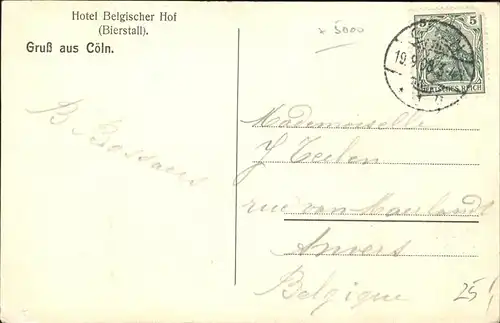 Hotel Belgischer Hof
(Bierstall).
Gruß aus Cöln.
5000
5
19.9.08
DEUTSCHES REICH
B. Bossaers
Mademoiselle
J Teelen
rue van Maerlandt
Anvers
Belgique
25!